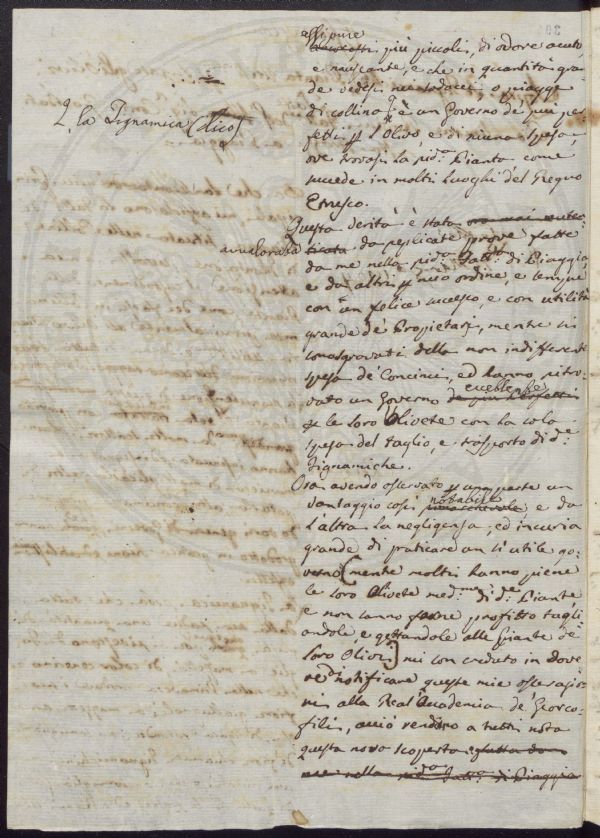 essi pure
più piccoli, di odore acuto,
e nauseante, e che in quantità gran
de vedesi ne
di collina è un Governo de più per
fetti p l'Olivo e di niuna spesa,
ove trovasi la pid.ª Pianta come
succede in molti Luoghi del Regno
Etrusco.
2. la Dignamica (dico)
Questa verità è stata
avvalorata da replicate prove fatte
da me nella pid.ª Fatt.ª di Piaggia
e da altri p mio ordine, e sempre
con un felice successo, e con utilità
grande de Propietarj, mentre si
sono sgravati della non indifferente
spesa de Concimi, ed hanno ritro
vato un Governo eccellente
p le loro Olivete con la sola
spesa del taglio, e trasporto di d.e
Dignamiche.
Ora avendo osservato p una parte un
vantaggio così notabile e da
l'altra la negligenza, ed incuria
grande di praticare un sì utile go-
verno (mente molti hanno piene
le loro Olivete med.me di d.e Piante,
e non sanno farne profitto tagli
andole, e gettandole alle Piante de
loro Olivi) mi son creduto in dovere
di notificare queste mie osservazio
ni alla Real Accademia de Georgo-
fili, acciò rendino a tutti nota
questa nova scoperta fatta da
me nella pid.ª Fatt.ª di Piaggia